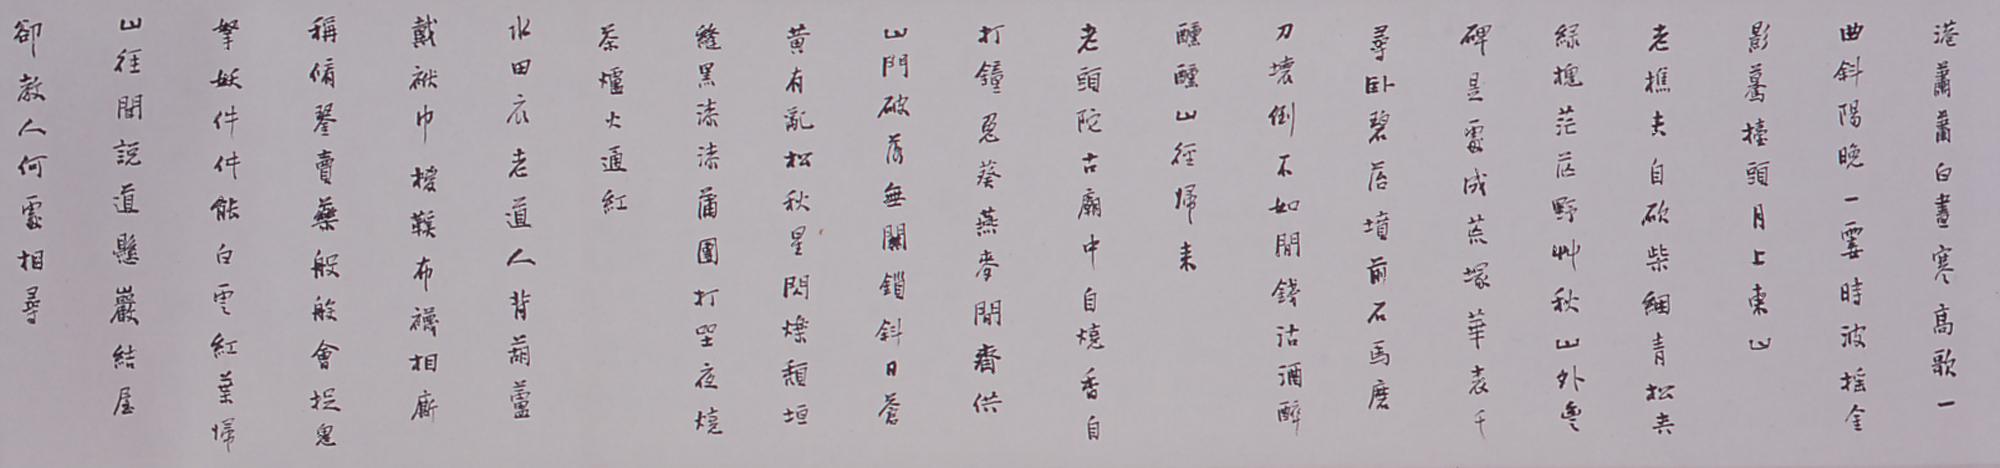 港蕭蕭白晝寒高歌一
曲斜陽晚一霎時波摇金
影驀擡頭月上東山
老樵夫自砍柴綑青松夾
綠槐茫茫野艸秋山外豐
碑是處成荒塚華表千
尋卧碧苔墳前石馬磨
刀壞倒不如閒錢沽酒醉
醺醺山徑歸来
老頭陀古廟中自燒香自
打鐘兔葵燕麥閒齋供
山門破落無關鎖斜日蒼
黄有亂松秋星閃爍頹垣
縫黑漆漆蒲團打坐夜燒
茶爐火通紅
水田衣老道人背葫蘆
戴袱巾椶鞵布襪相廝
稱脩琴賣藥般般會捉鬼
拏妖件件能白雲紅葉歸
山徑聞說道懸巖結屋
卻教人何處相尋